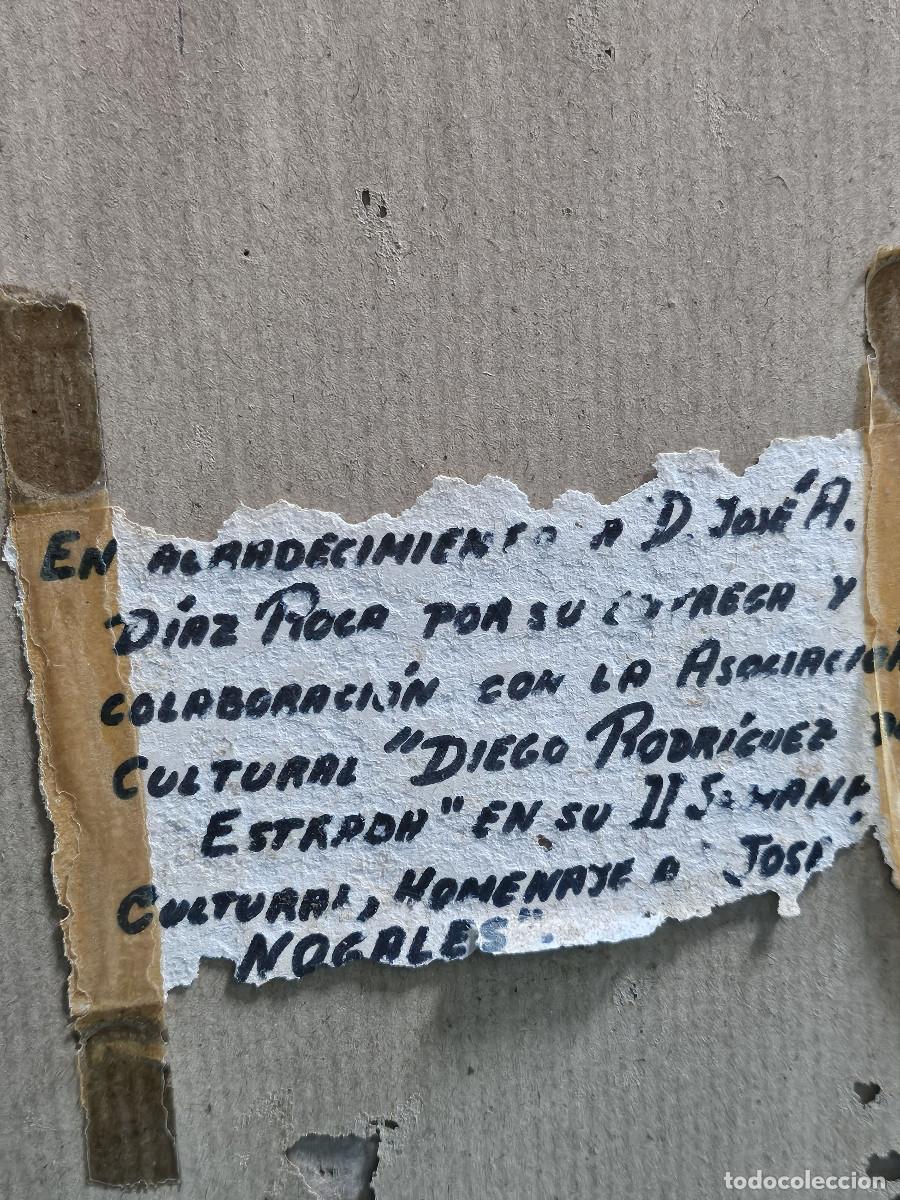 EN AGRADECIMIENTO A D. JOSÉ A.
DÍAZ ROCA POR SU ENTREGA Y
COLABORACIÓN CON LA ASOCIACIÓN
CULTURAL "DIEGO RODRÍGUEZ DE
ESTRADA" EN SU II SEMANA
CULTURAL, HOMENAJE A "JOSÉ
NOGALES".
todocoleccion